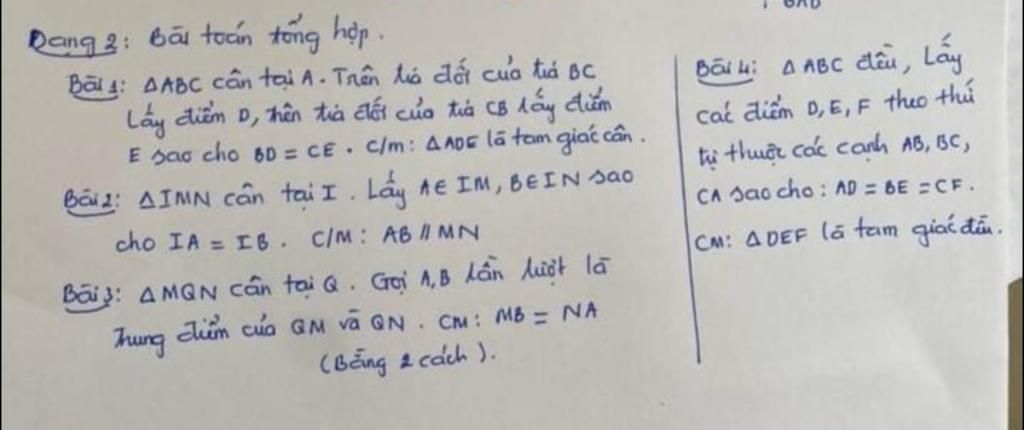 Dạng 2: Bài toán tổng hợp.
Bài 1: ΔABC cân tại A. Trên tia đối của tia BC
Lấy điểm D, trên tia đối của tia CB lấy điểm
E sao cho BD = CE. C/m: ΔADE là tam giác cân.
Bài 2: ΔIMN cân tại I. Lấy A∈IM, B∈IN sao
cho IA = IB. C/M: AB // MN
Bài 3: ΔMQN cân tại Q. Gọi A,B lần lượt là
Trung điểm của QM và QN. CM: MB = NA
(Bằng 2 cách).
Bài 4: ΔABC đều, Lấy
các điểm D, E, F theo thứ
tự thuộc các cạnh AB, BC,
CA sao cho: AD = BE = CF.
CM: ΔDEF là tam giác đều.